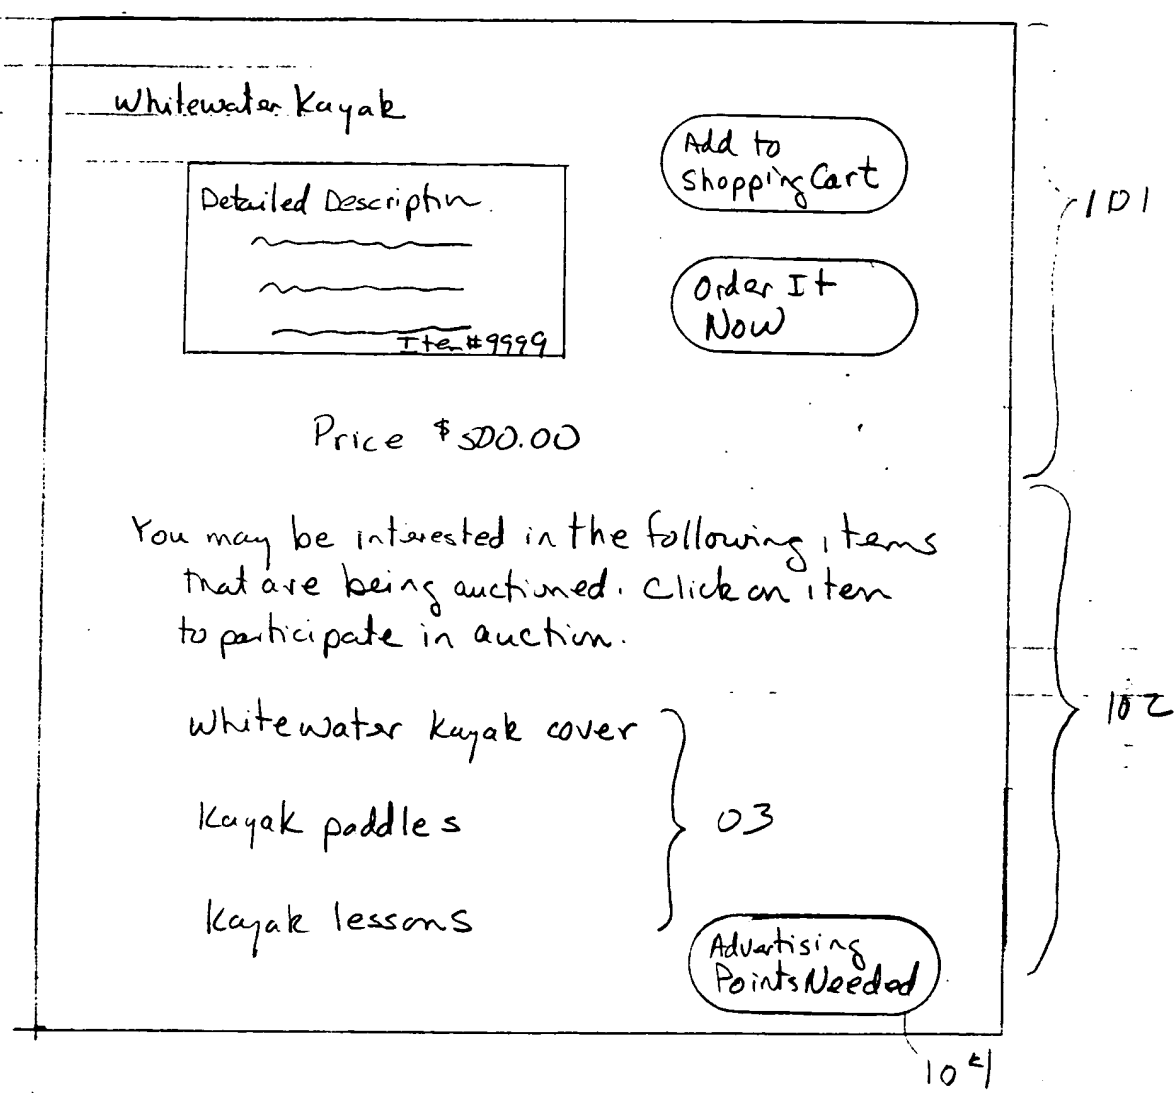 Whitewater Kayak
Add to
Shopping Cart
Detailed Description
Item #9999
Order It
Now
101
Price $500.00
You may be interested in the following items
that are being auctioned. Click on item
to participate in auction.
102
Whitewater Kayak cover
Kayak paddles
03
Kayak lessons
Advertising
Points Needed
104